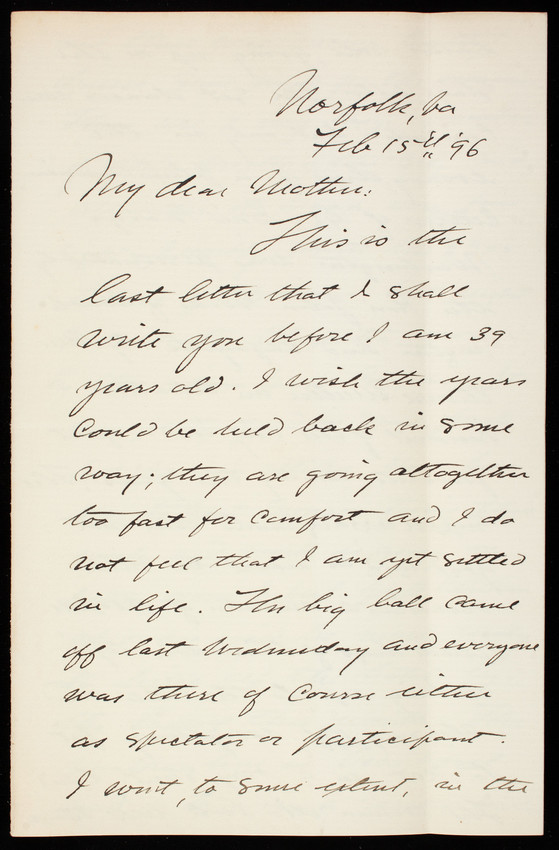 Norfolk, Va
Feb 15th '96
My dear Mother:
This is the
last letter that I shall
write you before I am 39
years old. I wish the years
could be held back in some
way; they are going altogether
too fast for comfort and I do
not feel that I am yet settled
in life. The big ball came
off last Wednesday and everyone
was there of course either
as spectator or participant.
I went, to some extent, in the